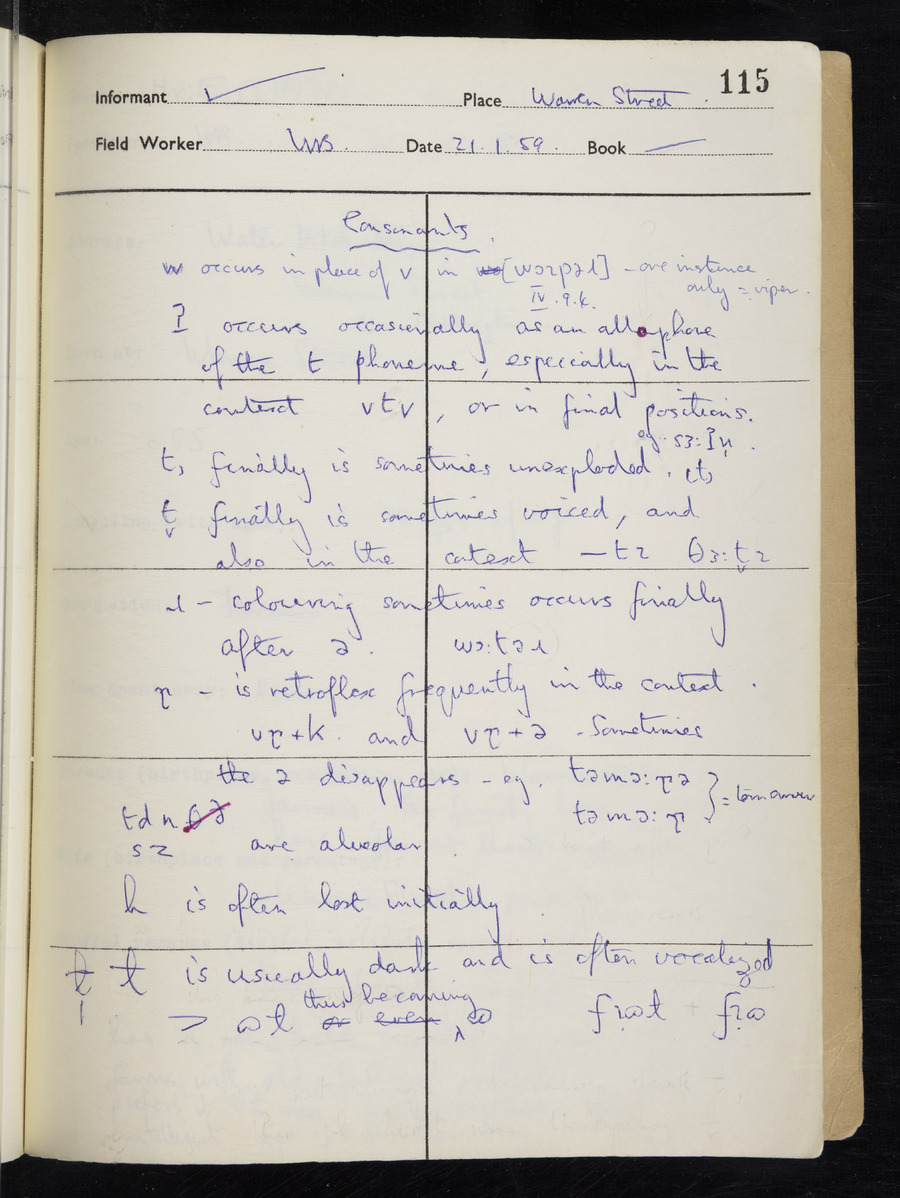 115
Informant ✓ Place Warren Street.
Field Worker Date 21.1.59. Book —
Consonants.
w occurs in place of v in [wɔɪpəɹ] – one instance
only = viper.
IV.9.k.
ʔ occurs occasionally as an allophone
of the t phoneme, especially in the
context vtv, or in final positions.
eg. sɜ:ʔn̩.
t, finally is sometimes unexploded.
t̬ finally is sometimes voiced, and
also in the context —tz θɜ:t̬z
ɹ – colouring sometimes occurs finally
after ə. wɔ:təɹ
ɽ – is retroflex frequently in the context.
vɽ+k. and vɽ+ə – Sometimes
the ə disappears – eg. təmɔ:ɽə
təmɔ:ɽ } = tomorrow
t d n
s z are alveolar.
h is often lost initially.
ɫ ɫ is usually dark and is often vocalized
thus becoming
> ωɫ or even ω fɪωɫ fɪω